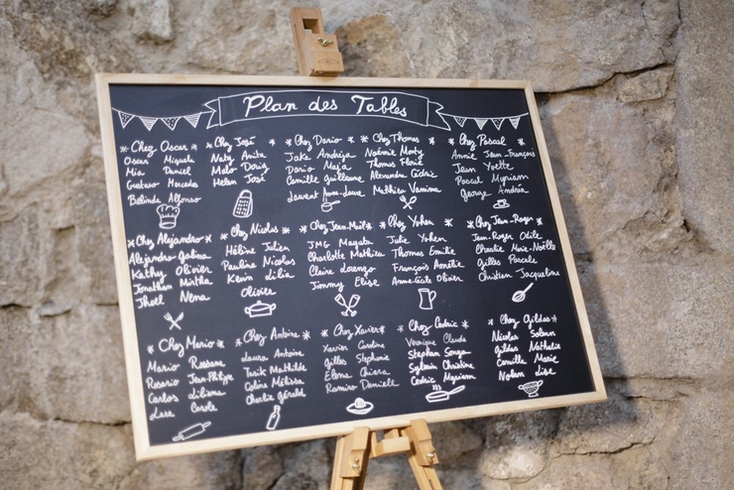 Plan des Tables
* Chez Oscar *
Oscar Miguela
Mia Daniel
Gustavo Mercedes
Belinda Alfonso
* Chez José *
Naty Anita
Malo Doria
Helen José
* Chez Dario *
Jake Andreja
Dario Maja
Camille Guillaume
Laurent Anne-Laure
* Chez Thomas *
Noémie Morty
Thomas Florie
Alexandre Cédric
Mathieu Vanina
* Chez Pascal *
Annie Jean-François
Jean Yvette
Pascal Myriam
George Andréa
* Chez Alejandro *
Alejandro Galina
Kathy Olivier
Jonathan Mirtha
Jhoel Nena
* Chez Nicolas *
Hélène Julien
Pauline Nicolas
Kevin Lilia
Olivier
* Chez Jean-Mail *
JMG Mayata
Charlotte Mathieu
Claire Lorenzo
Jimmy Elise
* Chez Yohen *
Julie Yohen
Thomas Emilie
François Amélie
Anne-Cécile Olivier
* Chez Jean-Roger *
Jean-Roger Odile
Charlie Marie-Noëlle
Gilles Pascale
Christian Jacqueline
* Chez Mario *
Mario Rossana
Rosario Jean-Philippe
Carlos Liliana
Carole
* Chez Antoine *
Laura Antoine
Tarik Mathilde
Coline Mélissa
Charlie Gérald
* Chez Xavier *
Xavier Caroline
Gilles Stephanie
Elena Chiara
Ramiro Danielle
* Chez Cédric *
Véronique Claude
Stephan Sonya
Sylvain Christine
Cédric Myriam
* Chez Gildas *
Nicolas Solenn
Gildas Nathalie
Camille Marie
Nolann Lise